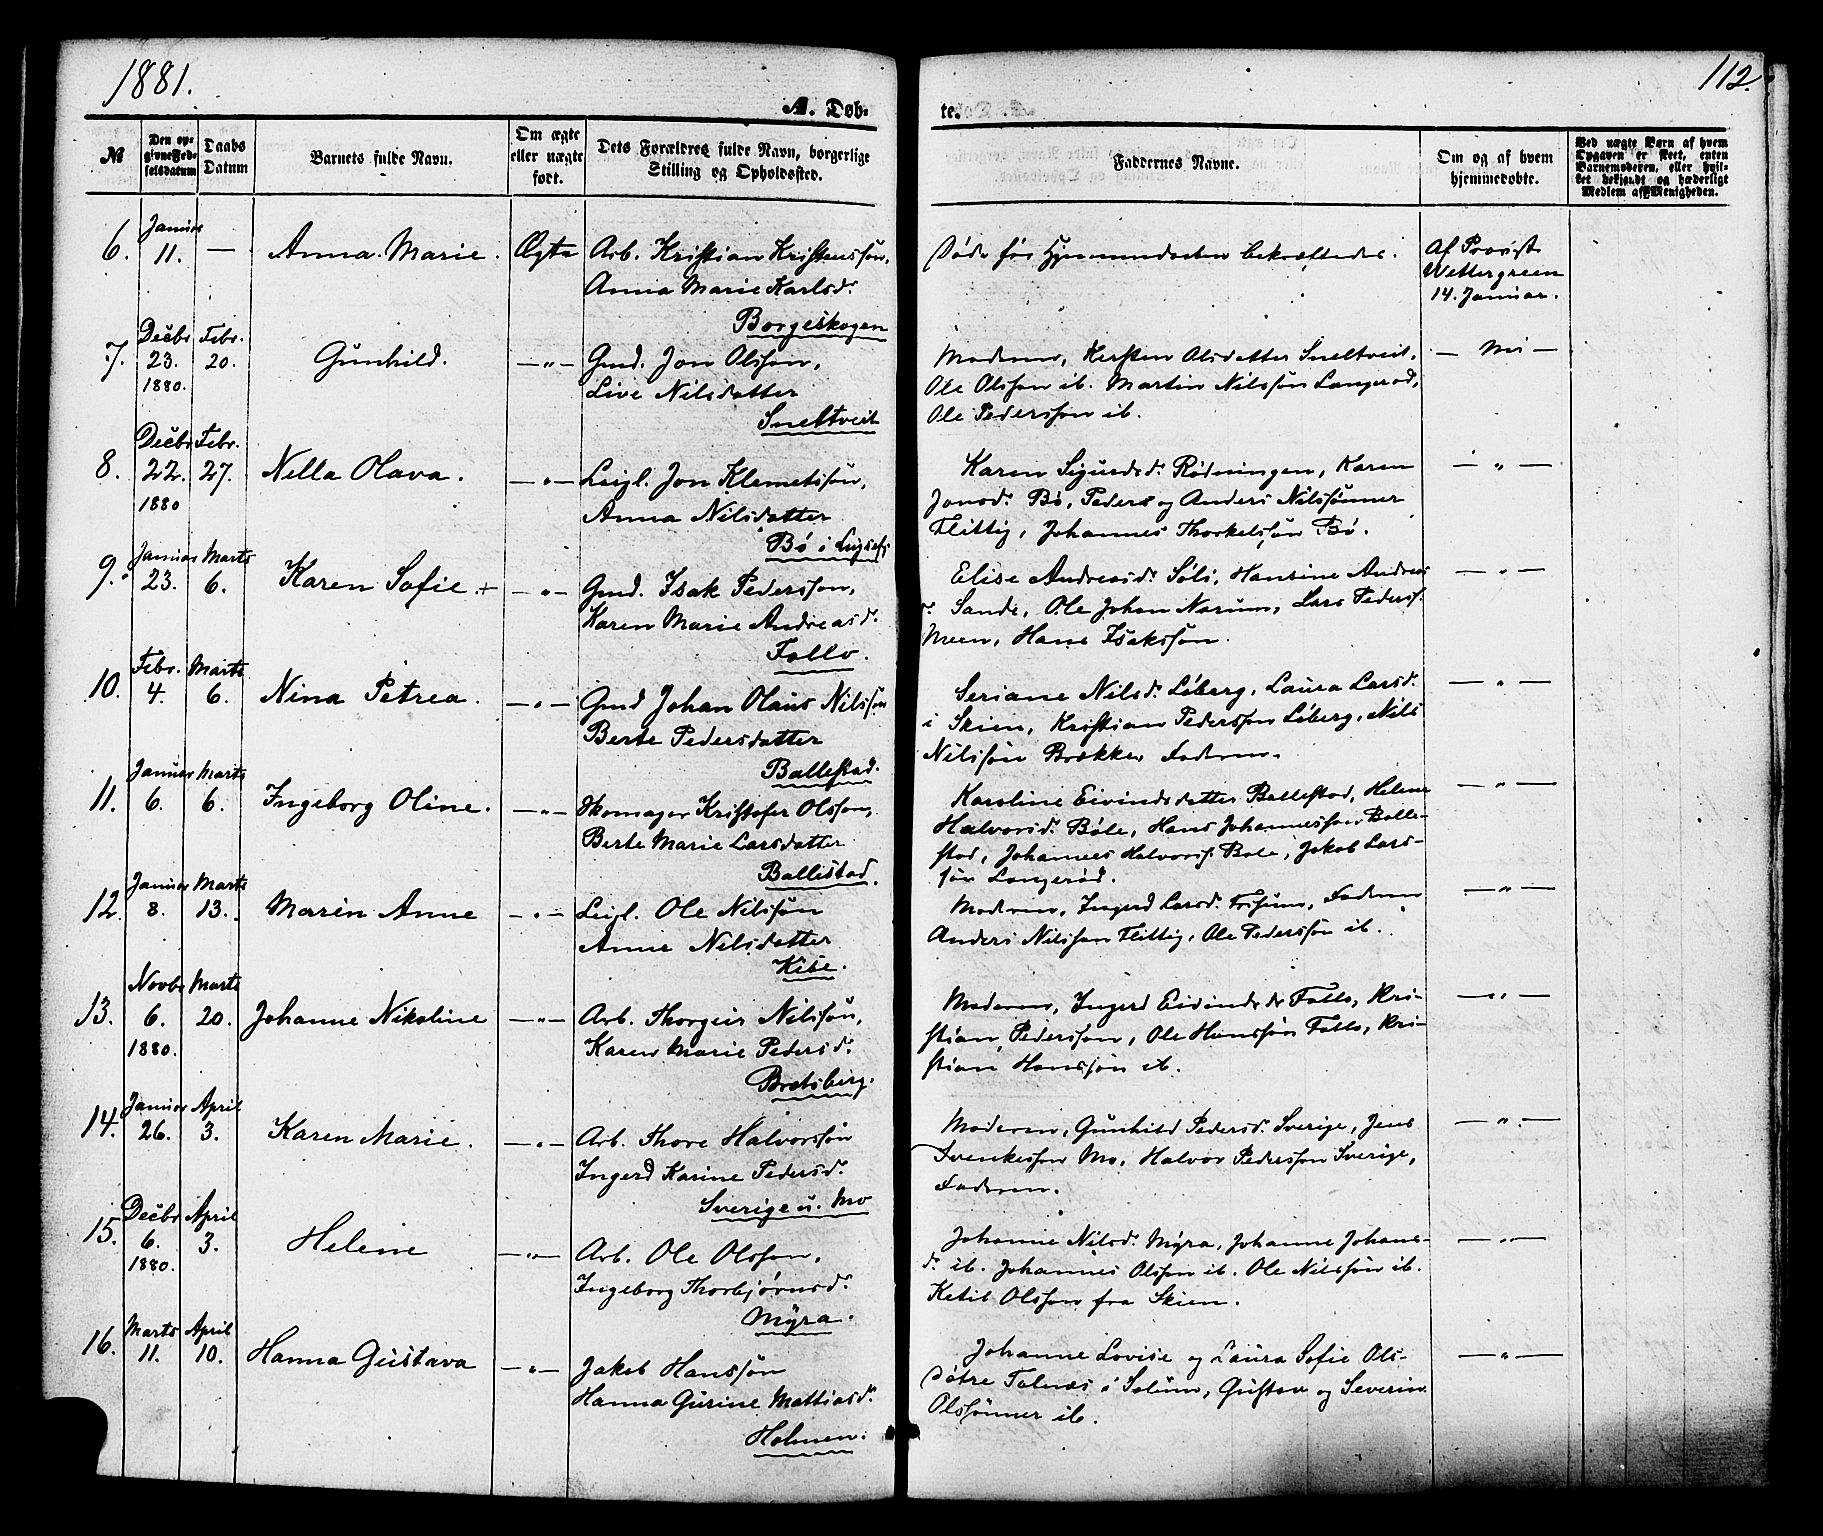 1881.
112.
A. Døb-
te.
№
Den op-
givne Fød-
selsdatum
Daabs
Datum
Barnets fulde Navn.
Om ægte
eller uægte
født.
Dets Forældres fulde Navn, borgerlige
Stilling og Opholdssted.
Faddernes Navne.
Om og af hvem
hjemmedøbte.
Ved uægte Barn af hvem
Opgaven er skeet, enten
Barnemoderen, eller hvil-
ket bekjendt og hæderligt
Medlem af Menigheden.
6.
Januar
11.
—
Anna Marie.
Ægte
Arb. Kristian Kristenssøn,
Anna Marie Karlsd.
Borgeskogen
Døde før Hjemmedaaben bekræftedes.
Af Provst
Wettergreen
14. Januar.
7.
Decbr
23.
1880.
Febr.
20.
Gunhild.
— " —
Gmd. Jon Olsson,
Live Nilsdatter
Sneltveit
Moderen, Kersten Olsdatter Sneltveit,
Ole Olsson ib. Martin Nilssøn Langerød,
Ole Pedersson ib.
— Nei —
8.
Decbr
22.
1880
Febr.
27.
Nella Olava.
— " —
Leigl. Jon Klemetssøn,
Anna Nilsdatter
Bø i
Karen Sigurdsd. Rødningen, Karen
Jonsd. Bø, Peder og Anders Nilssønner
Flittig, Johannes Thorkelssøn Bø.
— " —
9.
Januar
23.
Marts
6.
Karen Sofie. +
— " —
Gmd. Isak Pederssøn,
Karen Marie Andreasd.
Follo.
Elise Andreasd. Søli, Hansine Andreas
d. Sande, Ole Johan Narum, Lars Pederss.
Meen, Hans Isakssøn.
— " —
10.
Febr.
4.
Marts
6.
Nina Petrea.
— " —
Gmd Johan Olaus Nilssøn
Berte Pedersdatter
Ballestad.
Seriane Nilsd. Løberg, Laura Larsd.
i Skien, Kristian Pedersson Løberg, Nils
Nilssøn Brække, Faderen.
— " —
11.
Januar
6.
Marts
6.
Ingeborg Oline.
— " —
Skomager Kristofer Olsson,
Berte Marie Larsdatter
Ballestad.
Karoline Eivindsdatter Ballestad, Helene
Halvorsd. Bøle, Hans Johannesson Balle-
stad, Johannes Halvorss. Bøle, Jakob Lars-
søn Langerød.
— " —
12.
Januar
8.
Marts
13.
Maren Anne
— " —
Leigl. Ole Nilssøn
Anne Nilsdatter
Kise.
Moderen, Ingerd Larsd. Frisum, Faderen
Anders Nilsson Flittig, Ole Pederssøn ib.
— " —
13.
Novbr
6.
1880.
Marts
20.
Johanne Nikoline
— " —
Arb. Thorgeir Nilssøn,
Karen Marie Pedersd.
Bratsberg.
Moderen, Ingerd Eivindsdr Follo, Kri-
stian Pederssøn, Ole Hanssøn Follo, Kri-
stian Hanssøn ib.
— " —
14.
Januar
26.
April
3.
Karen Marie.
— " —
Arb. Thore Halvorssøn
Ingerd Karine Pedersd.
Sverige u. Mo
Moderen, Gunhild Pedersd. Sverige, Jens
Svenkesson Mo, Halvor Pedersson Sverige,
Faderen.
— " —
15.
Decbr
6.
1880.
April
3.
Helene
— " —
Arb. Ole Olsson,
Ingeborg Thorbjørnsd.
Myra.
Johanne Nilsd. Myra, Johanne Johans-
d. ib. Johannes Olsson ib. Ole Nilssøn ib.
Ketil Olsson fra Skien.
— " —
16.
Marts
11.
April
10.
Hanna Gustava
— " —
Jakob Hanssøn
Hanna Gurine Mattiasd.
Holmen.
Johanne Lovise og Laura Sofie Ols-
døtre Tolnæs i Solum, Gustav og Severin
Olssønner ib.
— " —